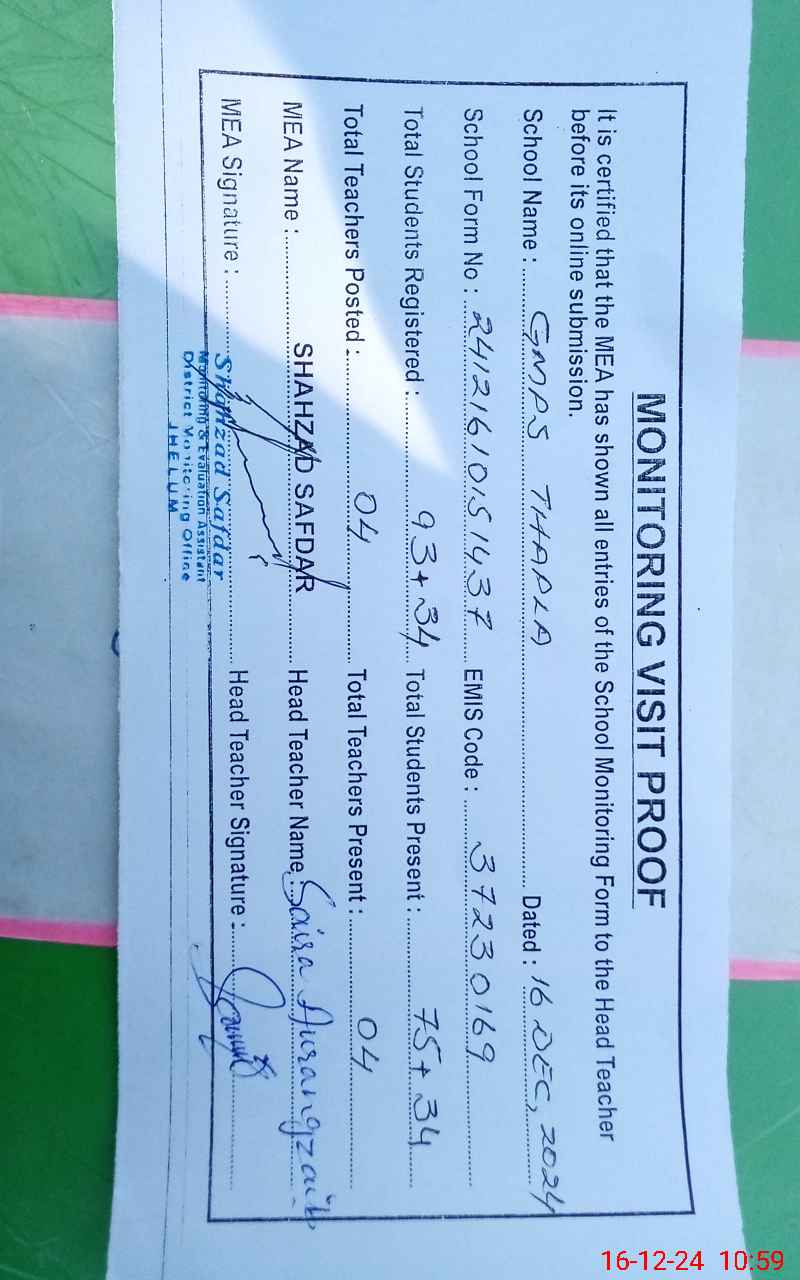 MONITORING VISIT PROOF
It is certified that the MEA has shown all entries of the School Monitoring Form to the Head Teacher
before its online submission.
School Name : GMPS THAPLA Dated : 16 DEC, 2024
School Form No : 24121610151437 EMIS Code : 37230169
Total Students Registered : 93+34 Total Students Present : 75+34
Total Teachers Posted : 04 Total Teachers Present : 04
MEA Name : SHAHZAD SAFDAR Head Teacher Name : Saira Aurangzaib
MEA Signature : Head Teacher Signature :
Shahzad Safdar
Monitoring & Evaluation Assistant
District Monitoring Office
JHELUM
16-12-24 10:59